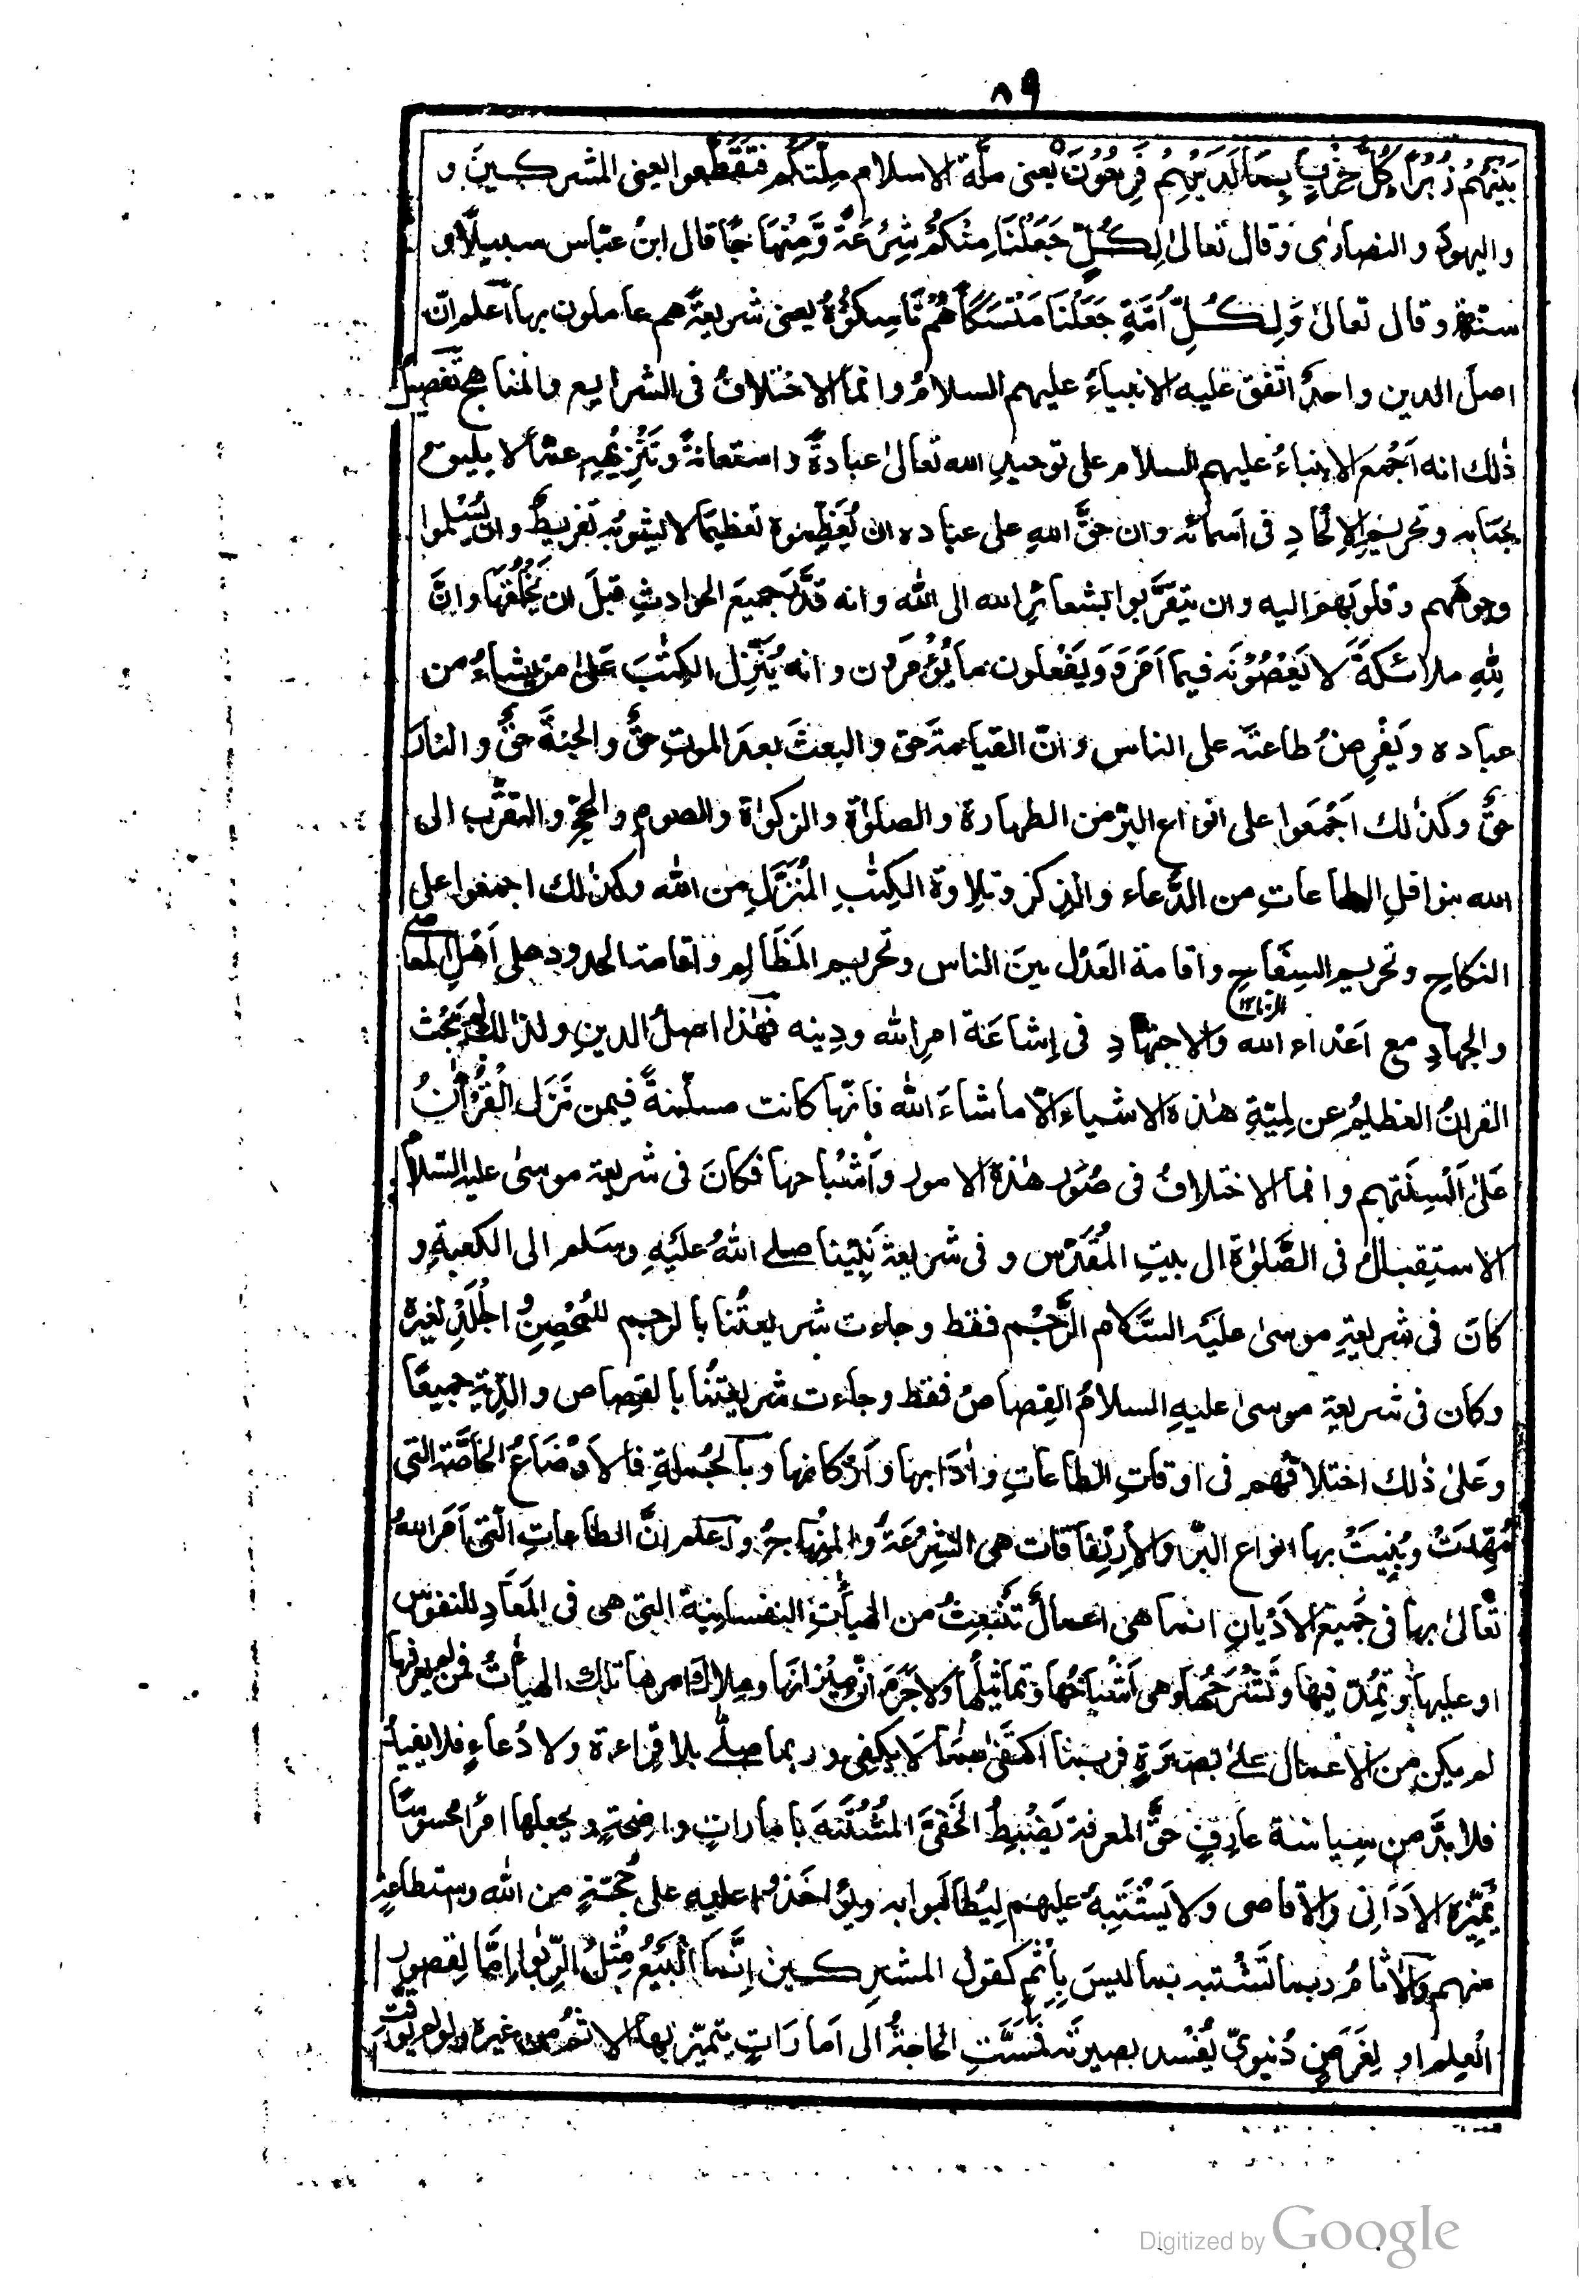 ٨٩
بَيْنَهُمْ زُبُرًا كُلُّ حِزْبٍ بِمَا لَدَيْهِمْ فَرِحُوْنَ يعنى ملّة الاسلام ملّتكم فتقطّعوا يعنى المشركين و
واليهود والنصارى وقال تعالىٰ لِكُلٍّ جَعَلْنَا مِنْكُمْ شِرْعَةً وَّمِنْهَاجًا قال ابنُ عبّاس سبيلًا و
سنة وقال تعالىٰ وَلِكُلِّ اُمَّةٍ جَعَلْنَا مَنْسَكًا هُمْ نَاسِكُوْهُ يعنى شريعةً هم عاملون بها اعلم انّ
اصلَ الدين واحدٌ اتّفق عليه الانبياءُ عليهم السلامُ وانما الاختلافُ فى الشرايع والمناهج تفصيل
ذٰلك انه اَجْمَعَ الانبياءُ عليهم السلام على توحيدِ الله تعالىٰ عبادةً واستعانةً وتَنْزِيْهِه عمّا لا يليق
بجنابه وتحريمِ الاِلْحَادِ فى اسمائه وان حقَّ اللهِ على عباده ان يُعَظِّموه تعظيمًا لا يشوبُه تفريطٌ وان يُسْلِموا
وجوهَهم وقلوبَهم اليه وان يتقرَّبوا بشعائرِ الله الى الله وانه قدَّر جميعَ الحوادثِ قبلَ ان يَخْلُقَها وانَّ
لِلّٰهِ ملائكةً لا يَعْصُوْنَه فيما اَمَرَ وَيَفْعلون ما يُؤْمَرون وانه يُنَزِّل الكتٰبَ عَلىٰ من يشاءُ من
عباده ويَفْرِضُ طاعتَه على الناس وانّ القيامةَ حق والبعثَ بعدَ الموتِ حقٌّ والجنةَ حقٌّ والنارَ
حقٌّ وكذٰلك اَجْمَعوا على انواع البرّ من الطهارة والصلوٰة والزكوٰة والصوم والحجّ والتقرّب الى
الله بنوافلِ الطاعاتِ من الدُّعاء والذكر وتلاوة الكتٰبِ المُنَزَّلِ من الله وكذٰلك اجمعوا على
النكاحِ وتحريمِ السِفَاحِ واقامة العَدْل بينَ الناس وتحريم المَظَالِم واقامة الحدود على اَهْلِ المعاصى
الزنا١٢
والجهادِ مع اعْداء الله والاجتهادِ فى اِشاعَة امرِ الله ودِينه فهٰذا اصلُ الدينِ ولذٰلك لم يبحث
القراٰنُ العظيمُ عن لِمِيّةِ هٰذه الاشياء الّا ما شاءَ الله فانّها كانت مسلّمةً فيمن نَزَلَ الْقُرْاٰنُ
عَلىٰ اَلْسِنَتِهم وانما الاختلافُ فى صُوَر هٰذه الامور واَشْباحها فكانَ فى شريعة موسىٰ عليه السلام
الاستقبالُ فى الصَّلوٰة الى بيتِ المُقَدَّس وفى شريعة نَبِيّنا صلى اللهُ عَليَهِ وسَلم الى الكعبةِ و
كانَ فى شريعةِ موسىٰ عليَه السَّلام الرَّجْم فقط وجاءت شريعتُنا بالرجم للمُحْصِنِ والجَلْدِ لغيره
وكان فى شريعةِ موسىٰ عليهِ السلامُ القِصاصُ فقط وجاءت شريعتُنا بالقِصاص والدِّيةِ جميعًا
وعَلىٰ ذٰلك اختلافُهم فى اوقاتِ الطاعاتِ واٰدَابها واَرْكانها وبالجُملةِ فالاَوْضَاعُ الخاصّة التى
مُهِّدَتْ وبُنِيَتْ بها انواع البرّ والاِرْتفاقات هى الشِرْعَةُ والمنْهاجُ واعلم انَّ الطاعاتِ الّتى اَمَر اللهُ
تعَالىٰ بها فى جَميع الاَدْيانِ انما هى اعمالٌ تَنْبَعِثُ من الهياٰتِ النفسانيةِ التى هى فى المَعَادِ للنفوس
او عليها وتمُدّ فيها وتَشْرَحُها وهى اَشْباحُها وتماثيلُها ولا جَرَمَ انّ ميزانَها وملاكَ امرها تلك الهيأتُ فمن لم يعرفها
لم يكن من الاَعمال على بَصيرةٍ فربّما اكتفىٰ بما لا يكفى وربما صلّٰى بلا قِراءة ولا دُعاءٍ فلا يفيد
فلا بدَّ من سِياسة عارِفٍ حقَّ المعرفة يَضْبِطُ الخَفِىَّ المُشْتَبَهَ باماراتٍ واضحةٍ ويجعلها امرًا محسوسًا
يُميِّزه الاَدَانى والاَقاصى ولا يَشْتَبِهُ عليهم لِيُطالَبوا به ويؤاخَذوا عليه على حُجّةٍ من الله واستطاعةٍ
منهم والاٰثامُ ربما تَشْتبه بما ليسَ بِاثْمٍ كقول المشركين اِنَّمَا الْبَيْعُ مِثْلُ الرِّبٰوا اِمّا لِقصور
العِلم او لِغَرَضٍ دُنيوىّ يُفْسد بصيرتَه فمَسَّتِ الحاجةُ الى اَمَارَاتٍ يتميّز بها الاثمُ من غيره ولو لم يوقّت
Digitized by Google